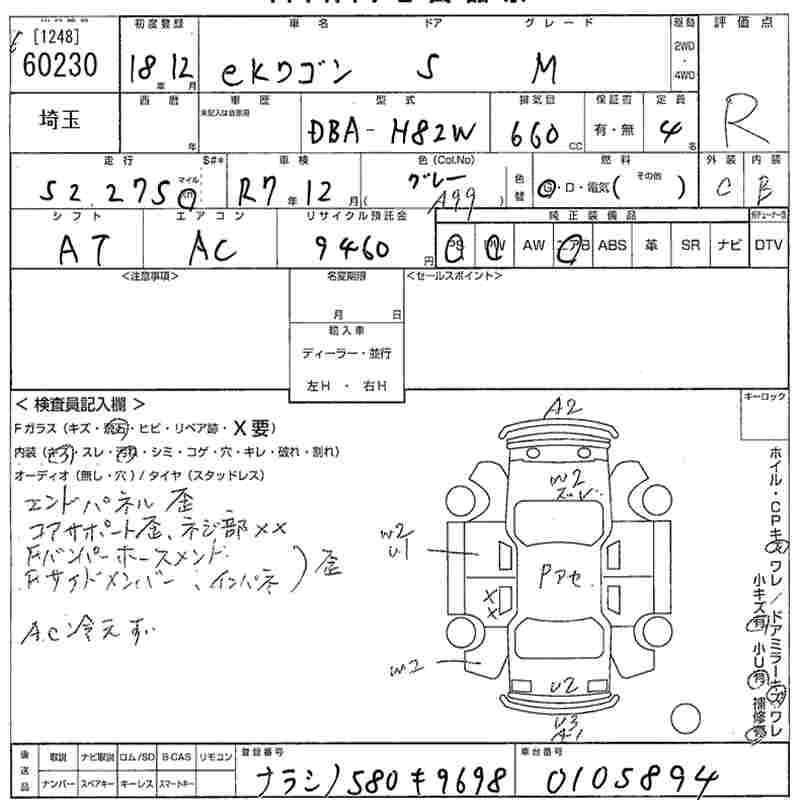 [1248]
60230
初度登録 車名 ドア グレード 駆動 評価点
18年12月 eKワゴン 5 M 2WD・4WD R
埼玉
西暦 年 車歴 未記入は自家用 型式 排気量 保証書 定員
DBA-H82W 660cc 有・無 4名
走行 S#* 車検 色(Col.No) 色替 燃料 外装 内装
52,275 マイル km R7年12月 グレー A99 G・D・電気( その他 ) C B
シフト エアコン リサイクル預託金 純正装備品
AT AC 9460円 PS PW AW エアB ABS 革 SR ナビ DTV
<注意事項> 名変期限 <セールスポイント>
月 日
輸入車
ディーラー・並行
左H ・ 右H
<検査員記入欄> キーロック
Fガラス(キズ・飛石・ヒビ・リペア跡・X要)
内装(キズ・スレ・汚れ・シミ・コゲ・穴・キレ・破れ・割れ)
オーディオ(無し・穴)/タイヤ(スタッドレス)
エンドパネル歪
コアサポート歪、ネジ部××
Fバンパーホースメンド
Fサイドメンバー、インパネ)歪
AC冷えずい
A2
W2
ズレ
W2
U1
Pアセ
××
W2
U2
U3
A1
ホイル・CPキズ ワレ/ドアミラーキズ・ワレ
小キズ有 小U有 補修有
後送品 取説 ナビ取説 ロム/SD B-CAS リモコン 登録番号 車台番号
ナンバー スペアキー キーレス スマートキー ナラシノ580キ9698 0105894